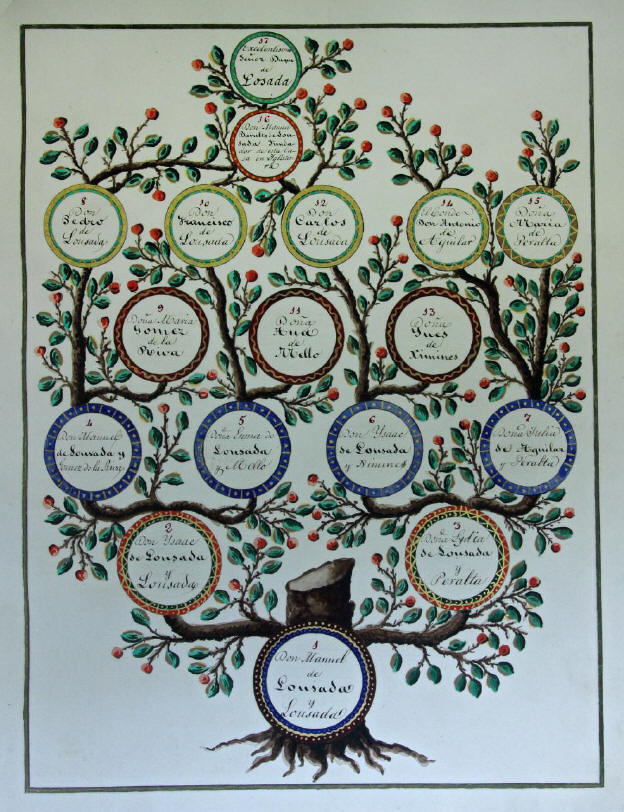 17
Excelentisimo
Señor Duque
de
Losada
16
Don Manuel
Lousada
de esta
8
Don
Pedro
de
Lousada
10
Don
Francisco
de
Lousada
12
Don
Carlos
de
Lousada
14
el Conde
Don Antonio
de
Aguilar
15
Doña
Maria
de
Peralta
9
Doña Maria
Gomez
de la
11
Doña
Ana
de
Mello
13
Doña
Ynes
de
Ximines
4
Don Manuel
de Lousada y
Gomez de la
5
Doña de
Lousada
y Mello
6
Don Ysaac
de Lousada
y Ximines
7
Doña
de Aguilar
y Peralta
2
Don Ysaac
de Lousada
y
Lousada
3
Doña
de Lousada
y
Peralta
1
Don Manuel
de
Lousada
y
Lousada